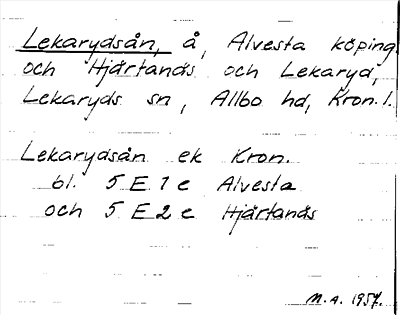 Lekarydsån, å, Alvesta köping
och Hjärtanäs och Lekaryd,
Lekaryds sn, Allbo hd, Kron. l.
Lekarydsån ek Kron.
bl. 5 E 1 e Alvesta
och 5 E 2 e Hjärtanäs
M.A. 1957.